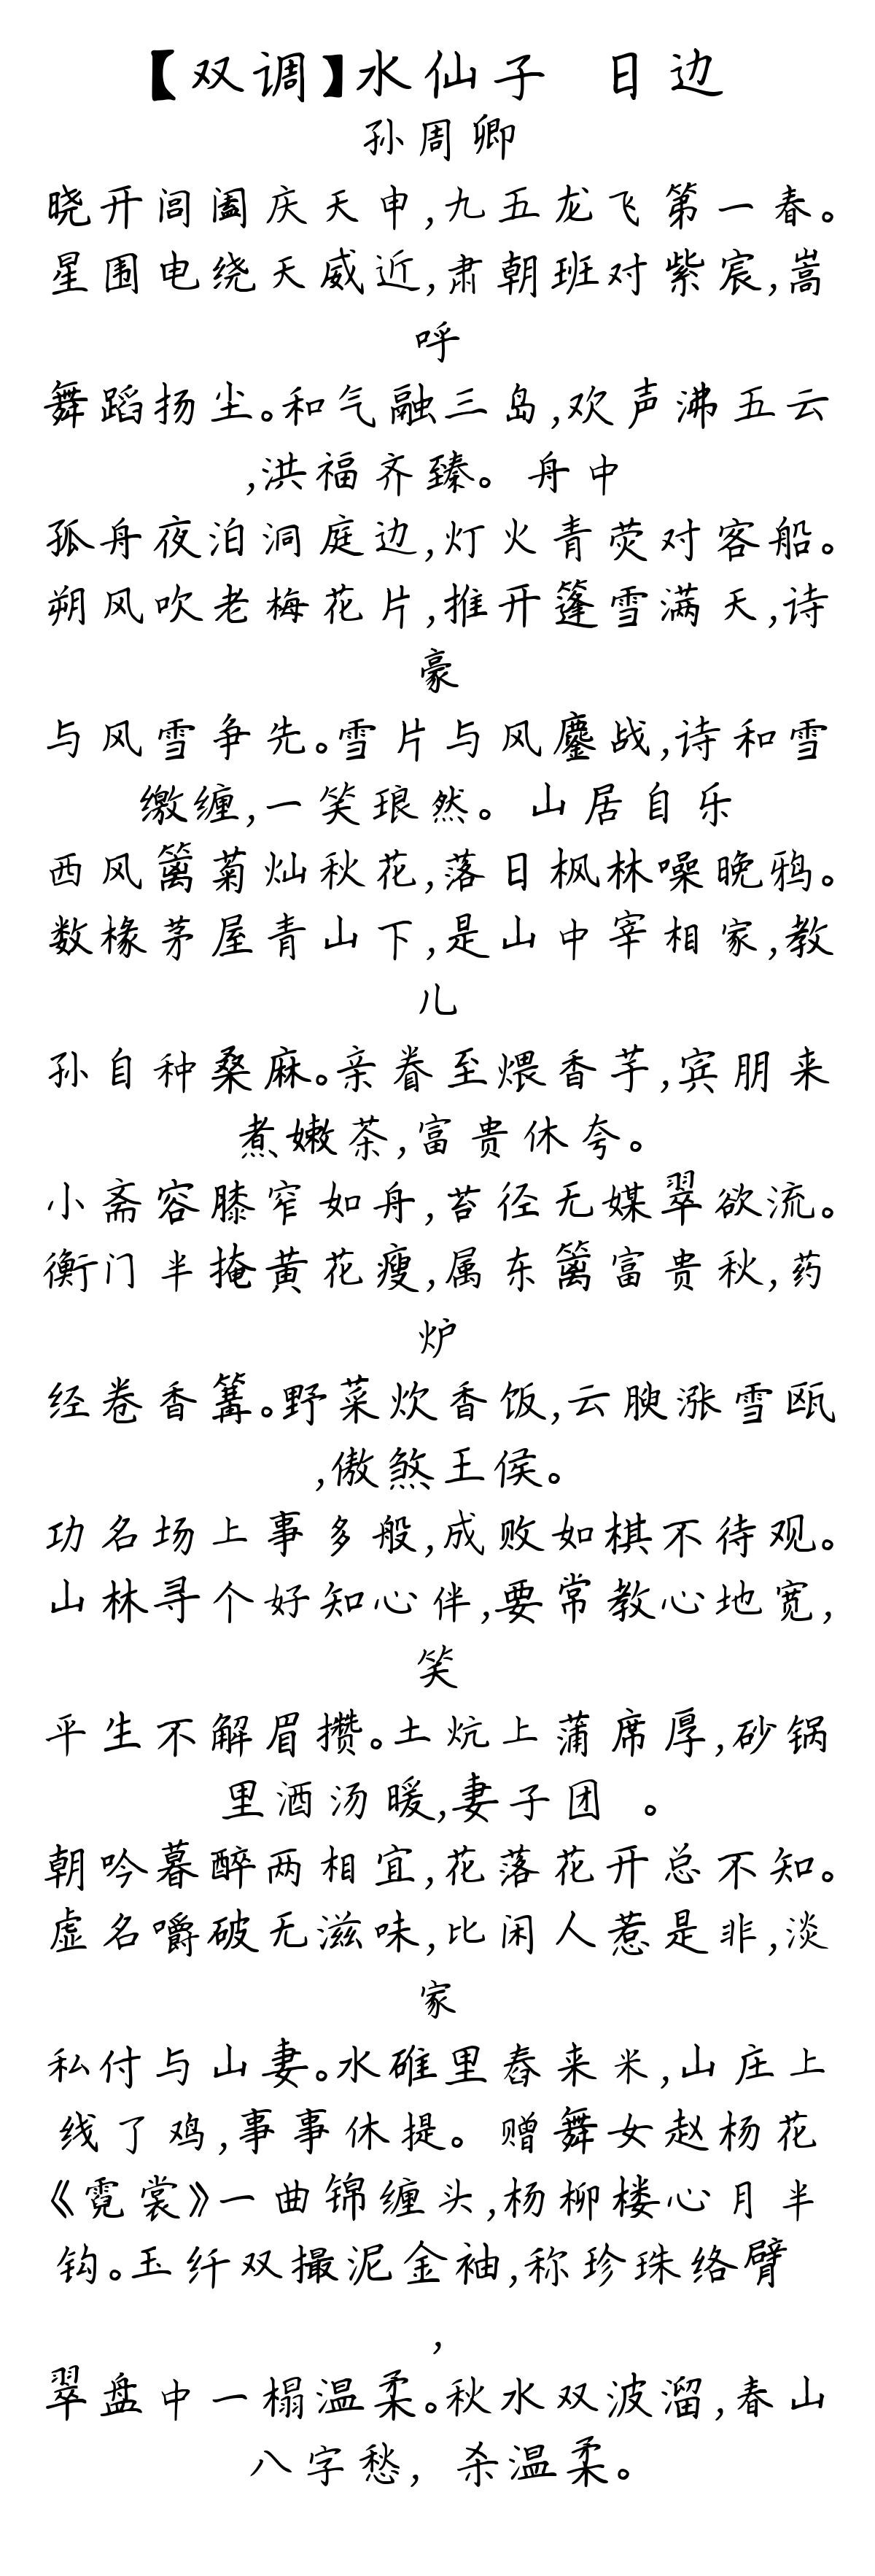 【双调】水仙子　日边
孙周卿
晓开阊阖庆天申,九五龙飞第一春。
星围电绕天威近,肃朝班对紫宸,嵩
呼
舞蹈扬尘。和气融三岛,欢声沸五云
,洪福齐臻。 舟中
孤舟夜泊洞庭边,灯火青荧对客船。
朔风吹老梅花片,推开篷雪满天,诗
豪
与风雪争先。雪片与风鏖战,诗和雪
缴缠,一笑琅然。 山居自乐
西风篱菊灿秋花,落日枫林噪晚鸦。
数椽茅屋青山下,是山中宰相家,教
儿
孙自种桑麻。亲眷至煨香芋,宾朋来
煮嫩茶,富贵休夸。
小斋容膝窄如舟,苔径无媒翠欲流。
衡门半掩黄花瘦,属东篱富贵秋,药
炉
经卷香篝。野菜炊香饭,云腴涨雪瓯
,傲煞王侯。
功名场上事多般,成败如棋不待观。
山林寻个好知心伴,要常教心地宽,
笑
平生不解眉攒。土炕上蒲席厚,砂锅
里酒汤暖,妻子团 。
朝吟暮醉两相宜,花落花开总不知。
虚名嚼破无滋味,比闲人惹是非,淡
家
私付与山妻。水碓里舂来米,山庄上
线了鸡,事事休提。 赠舞女赵杨花
《霓裳》一曲锦缠头,杨柳楼心月半
钩。玉纤双撮泥金袖,称珍珠络臂
,
翠盘中一榻温柔。秋水双波溜,春山
八字愁, 杀温柔。